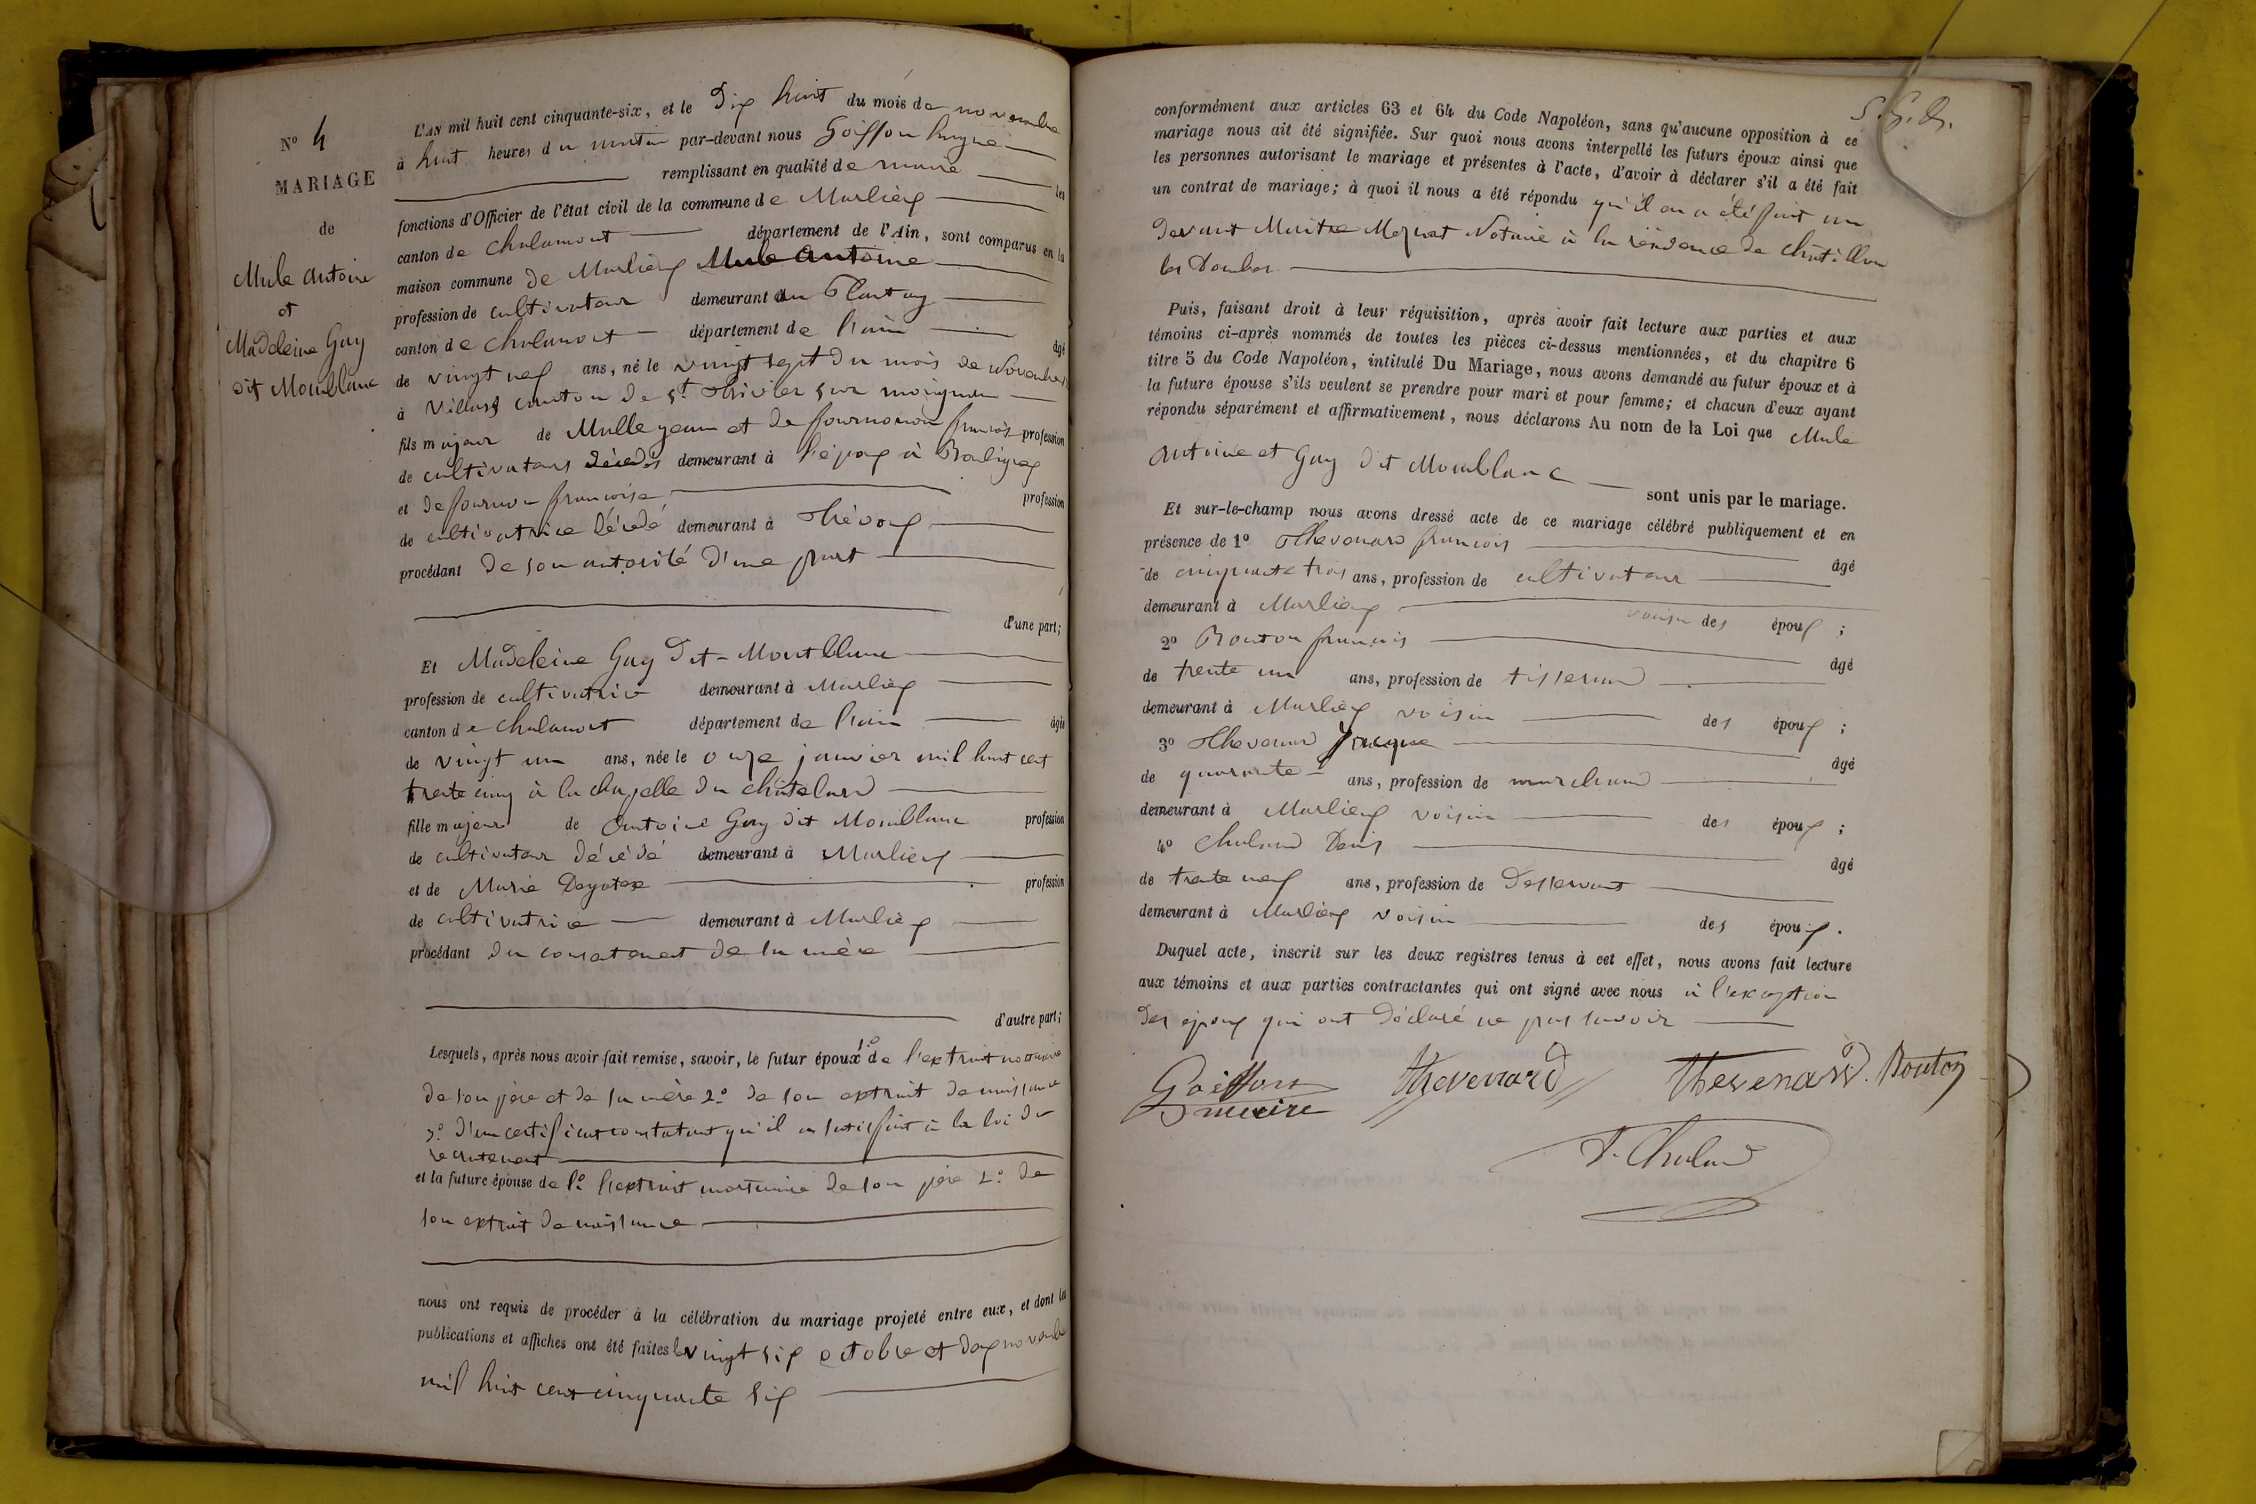 N° 4
MARIAGE
de
Mule Antoine
et
Madeleine Guy
dit Monblanc
L'AN mil huit cent cinquante-six, et le Dix huit du mois de novembre
à huit heures du matin par-devant nous Goiffon hugue
remplissant en qualité de maire les
fonctions d'Officier de l'état civil de la commune de Marlieux
canton de Chalamont département de l'Ain, sont comparus en la
maison commune de Marlieux Mule Antoine
profession de cultivateur demeurant au Plantay
canton de Chalamont département de l'ain âgé
de vingt neuf ans, né le vingt sept du mois de Novembre
à Villars canton de St thivier sur moignan
fils majeur de Mulle jean et de fournion françois profession
de cultivateur décédés demeurant à l'époux à Bouligneux
et de fournion françoise profession
de cultivatrice décédé demeurant à thévoux
procédant de son autorité d'une part
d'une part;
Et Madeleine Guy dit-Montblanc
profession de cultivatrice demeurant à Marlieux
canton de Chalamont département de l'ain âgée
de vingt un ans, née le onze janvier mil huit cent
trente cinq à la chapelle du châtelard
fille majeur de Antoine Guy dit Monblanc profession
de cultivateur décédé demeurant à Marlieux
et de Marie profession
de cultivatrice demeurant à Marlieux
procédant du consentement de la mère
d'autre part;
Lesquels, après nous avoir fait remise, savoir, le futur époux 1° de l'extrait mortuaire
de son père et de sa mère 2° de son extrait de naissance
3° d'un certificat constatant qu'il a satisfait à la loi du
recrutement
et la future épouse de 1° l'extrait mortuaire de son père 2° de
son extrait de naissance
nous ont requis de procéder à la célébration du mariage projeté entre eux, et dont les
publications et affiches ont été faites les vingt six octobre et deux novembre
mil huit cent cinquante six
conformément aux articles 63 et 64 du Code Napoléon, sans qu'aucune opposition à ce
mariage nous ait été signifiée. Sur quoi nous avons interpellé les futurs époux ainsi que
les personnes autorisant le mariage et présentes à l'acte, d'avoir à déclarer s'il a été fait
un contrat de mariage; à quoi il nous a été répondu qu'il en a été fait un
devant Maitre Notaire à la résidence de châtillon
les Dombes
Puis, faisant droit à leur réquisition, après avoir fait lecture aux parties et aux
témoins ci-après nommés de toutes les pièces ci-dessus mentionnées, et du chapitre 6
titre 5 du Code Napoléon, intitulé Du Mariage, nous avons demandé au futur époux et à
la future épouse s'ils veulent se prendre pour mari et pour femme; et chacun d'eux ayant
répondu séparément et affirmativement, nous déclarons Au nom de la Loi que Mule
Antoine et Guy dit Monblanc sont unis par le mariage.
Et sur-le-champ nous avons dressé acte de ce mariage célébré publiquement et en
présence de 1° Thevenard françois âgé
de cinquante trois ans, profession de cultivateur
demeurant à Marlieux voisin des époux ;
2° Bouton françois âgé
de trente un ans, profession de tisserand
demeurant à Marlieux voisin des époux ;
3° Thevenard Jacque âgé
de quarante ans, profession de marchand
demeurant à Marlieux voisin des époux ;
4° Chaland Denis âgé
de trente neuf ans, profession de Desservant
demeurant à Marlieux voisin des époux.
Duquel acte, inscrit sur les deux registres tenus à cet effet, nous avons fait lecture
aux témoins et aux parties contractantes qui ont signé avec nous à l'exception
des époux qui ont déclaré ne pas savoir
Goiffon Thevenard Thevenard. Bouton
maire
D. Chaland